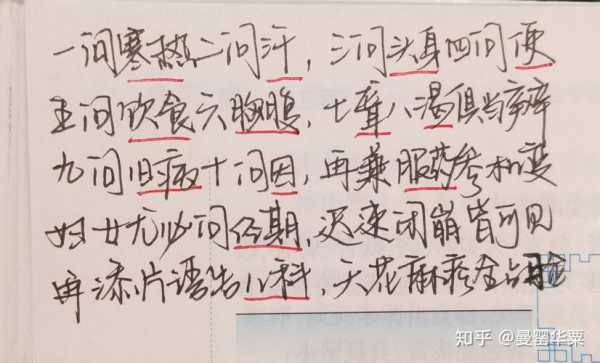 一问寒热二问汗，三问头身四问便
五问饮食六胸腹，七聋八渴俱当辨
九问旧病十问因，再兼服药参机变
妇女尤必问经期，迟速闭崩皆可见
再添片语告儿科，天花麻疹全占验
知乎 @曼罂华粟